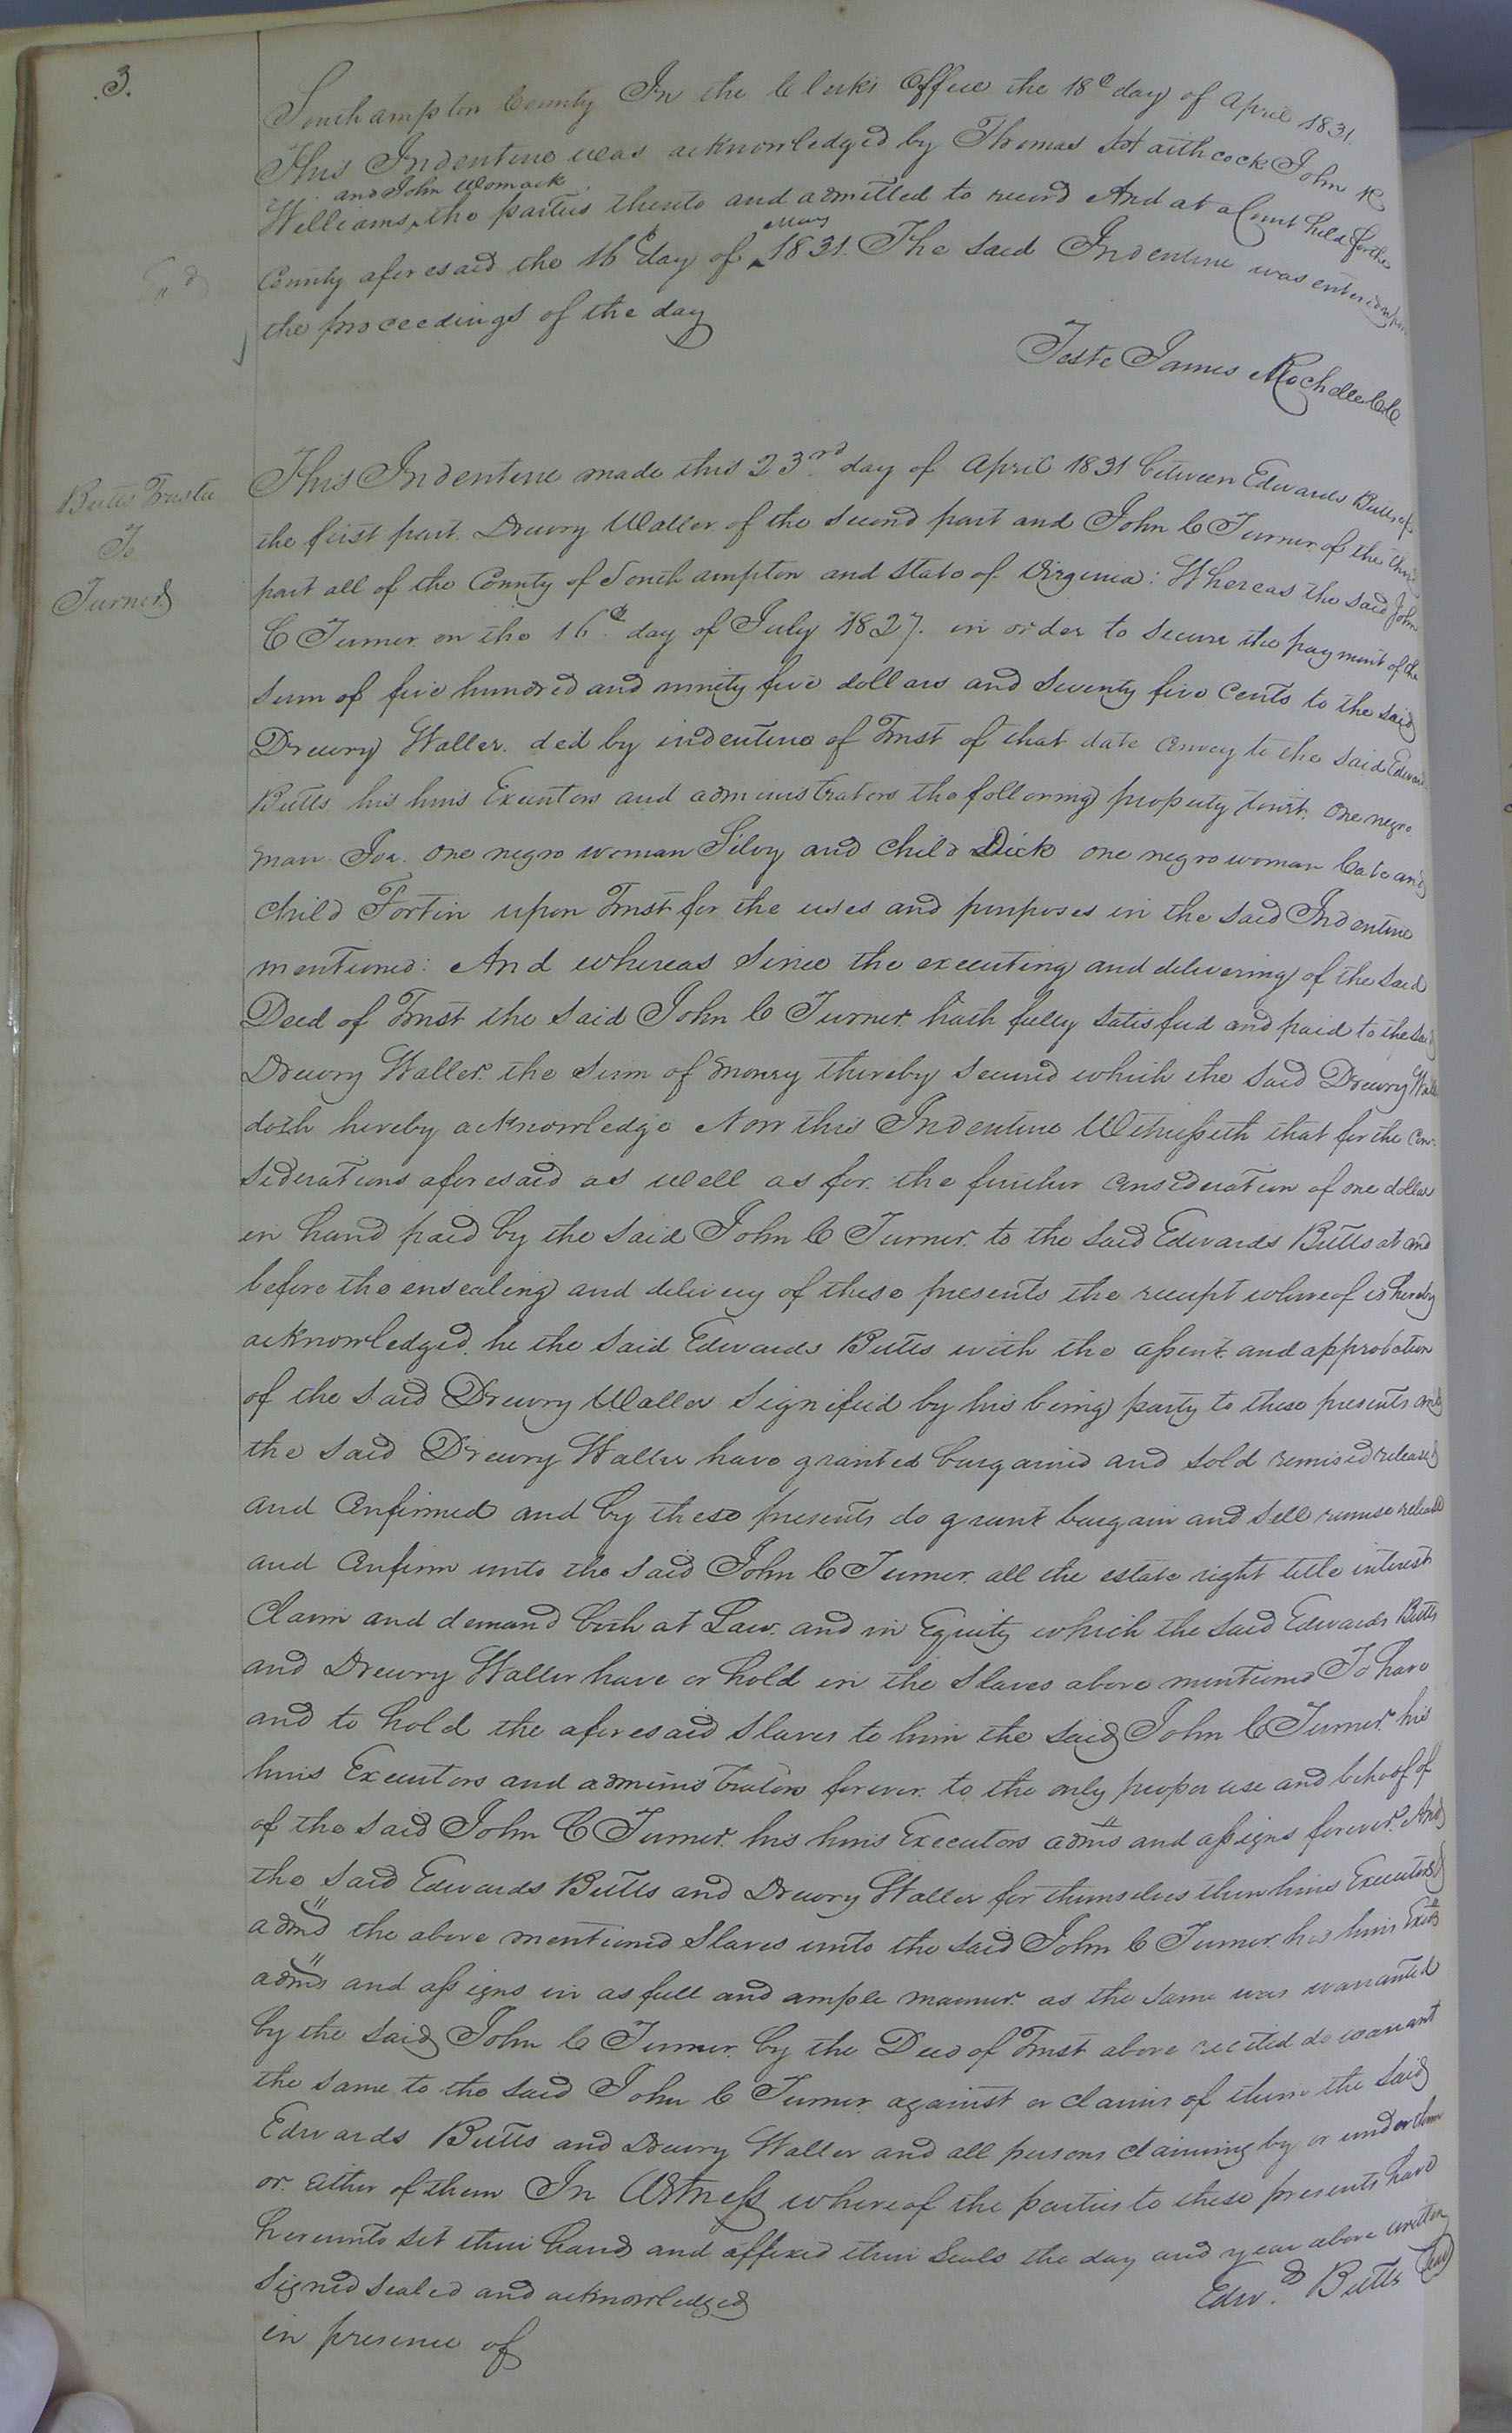 3.
Southampton County In the Clerks Office the 18th day of April 1831.
This Indenture was acknowledged by Thomas Haithcock John
and John Womack
Williams, the parties thereto and admitted to record And at a Court held for the
May
County aforesaid the 16th day of 1831. The said Indenture was entered
the proceedings of the day
Teste James Rochelle CC
Butts Trustee
To
Turner
This Indenture made this 23rd day of April 1831 between Edwards Butts of
the first part. Drewry Waller of the second part and John C Turner of the third
part all of the County of Southampton and State of Virginia: Whereas the said John
C Turner on the 16th day of July 1827. in order to secure the payment of the
sum of five hundred and ninety five dollars and seventy five cents to the said
Drewry Waller. did by indenture of Trust of that date convey to the said Edwards
Butts his heirs Executors and administrators the following property towit. One negro
man one negro woman Silvy and child Dick one negro woman Cate and
child Fortin upon Trust for the uses and purposes in the said Indenture
mentioned: And whereas since the executing and delivering of the said
Deed of Trust the said John C Turner hath fully satisfied and paid to the said
Drewry Waller the sum of money thereby secured which the said Drewry Waller
doth hereby acknowledge Now this Indenture Witnesseth that for the con-
siderations aforesaid as well as for the further consideration of one dollar
in hand paid by the said John C Turner to the said Edwards Butts at and
before the ensealing and delivery of these presents the receipt whereof is hereby
acknowledged. he the said Edwards Butts with the assent and approbation
of the said Drewry Waller signified by his being party to these presents and
the said Drewry Waller have granted bargained and sold remised released
and confirmed and by these presents do grant bargain and sell remise release
and confirm unto the said John C Turner all the estate right title interest
claim and demand both at Law. and in Equity which the said Edwards Butts
and Drewry Waller have or hold in the slaves above mentioned To have
and to hold the aforesaid slaves to him the said John C Turner his
heirs Executors and administrators forever. to the only proper use and behoof of
of the said John C Turner his heirs Executors adms and assigns forever. And
the said Edwards Butts and Drewry Waller for themselves their heirs Executors
adms the above mentioned slaves unto the said John C Turner his heirs Exors
adms and assigns in as full and ample manner as the same was warranted
by the said John C Turner by the Deed of Trust above recited do warrant
the same to the said John C Turner against or claims of them the said
Edwards Butts and Drewry Waller and all persons claiming by or under them
or either of them In Witness whereof the parties to these presents have
hereunto set their hands and affixed their seals the day and year above written
Signed sealed and acknowledged
Edwd. Butts (seal)
in presence of